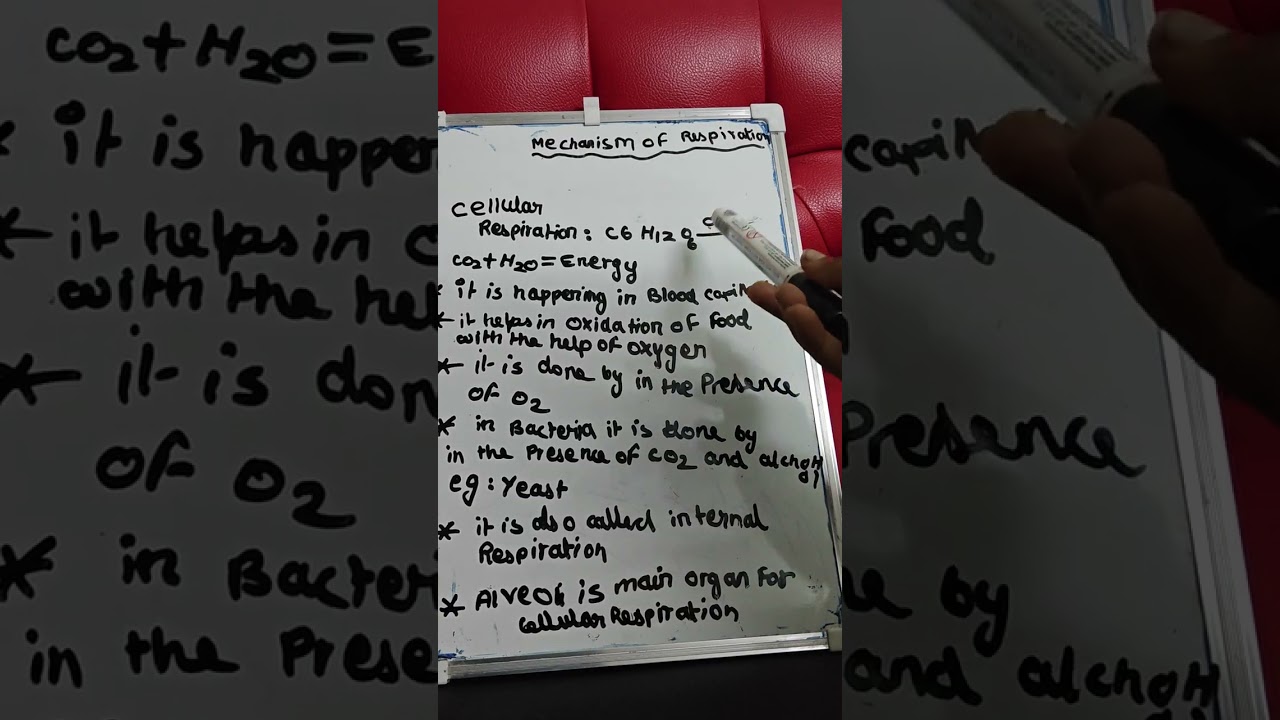 Mechanism of Respiration
cellular
Respiration: C6 H12 O6
CO2+H2O=Energy
* it is happening in Blood
* it helps in oxidation of Food
with the help of oxygen
* it is done by in the Presence
of O2
* in Bacteria it is done by
in the Presence of CO2 and
eg: Yeast
* it is also called internal
Respiration
* is main organ for
cellular Respiration